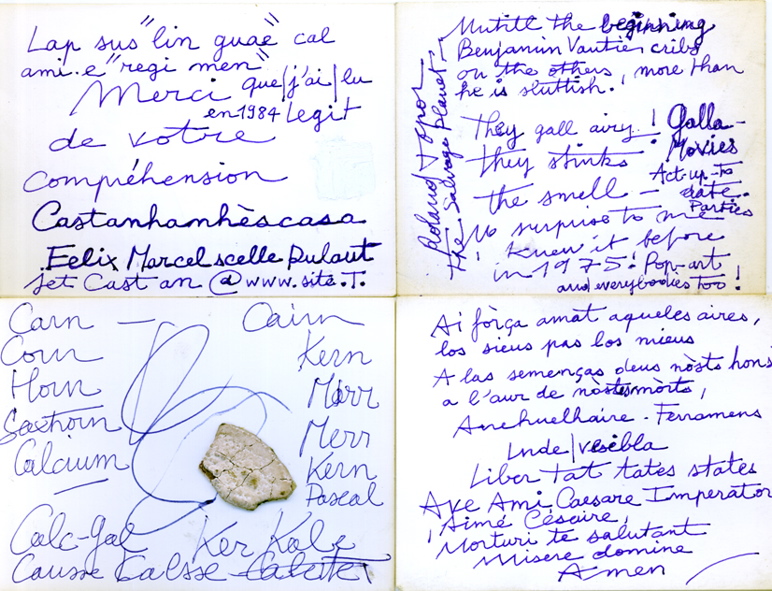 Lap sus "lin guae" cal
ami.e "regi men"
Merci que/j'ai/lu
en 1984 Legit
de votre
compréhension
Castanhamhèscasa
Felix Marcelscelle Pulaut
Jet Cast an @www.site.T.
Mutill the beginning
Benjamin Vautier cribs
on the others, more than
he is sluttish.
Roland Topor
the Salvage Planet
They gall airy ! Galla-
they stinks Movies
the smell – Act-up-to
date.
Parties
No surprise to me
I knew it before
in 1975! Pop-art
and everybodies too!
Carn — Cairn
Corn Kern
Horn Marr
Saxhorn Merr
Calcium Kern
Pascal
Calc-Gal Ker Kale
Causse Calsse Calcite
Ai fòrça amat aqueles aires,
los sieus pas los mieus
A las semenças deus nòsts hons
a l'aur de nòstes mòrts,
Anehuelhaire - Ferramens
Inde/vesibla
Liber Tat tates states
Ave Ami Caesare Imperator
Aimé Césaire,
Morturi te salutant
Misere domine
Amen